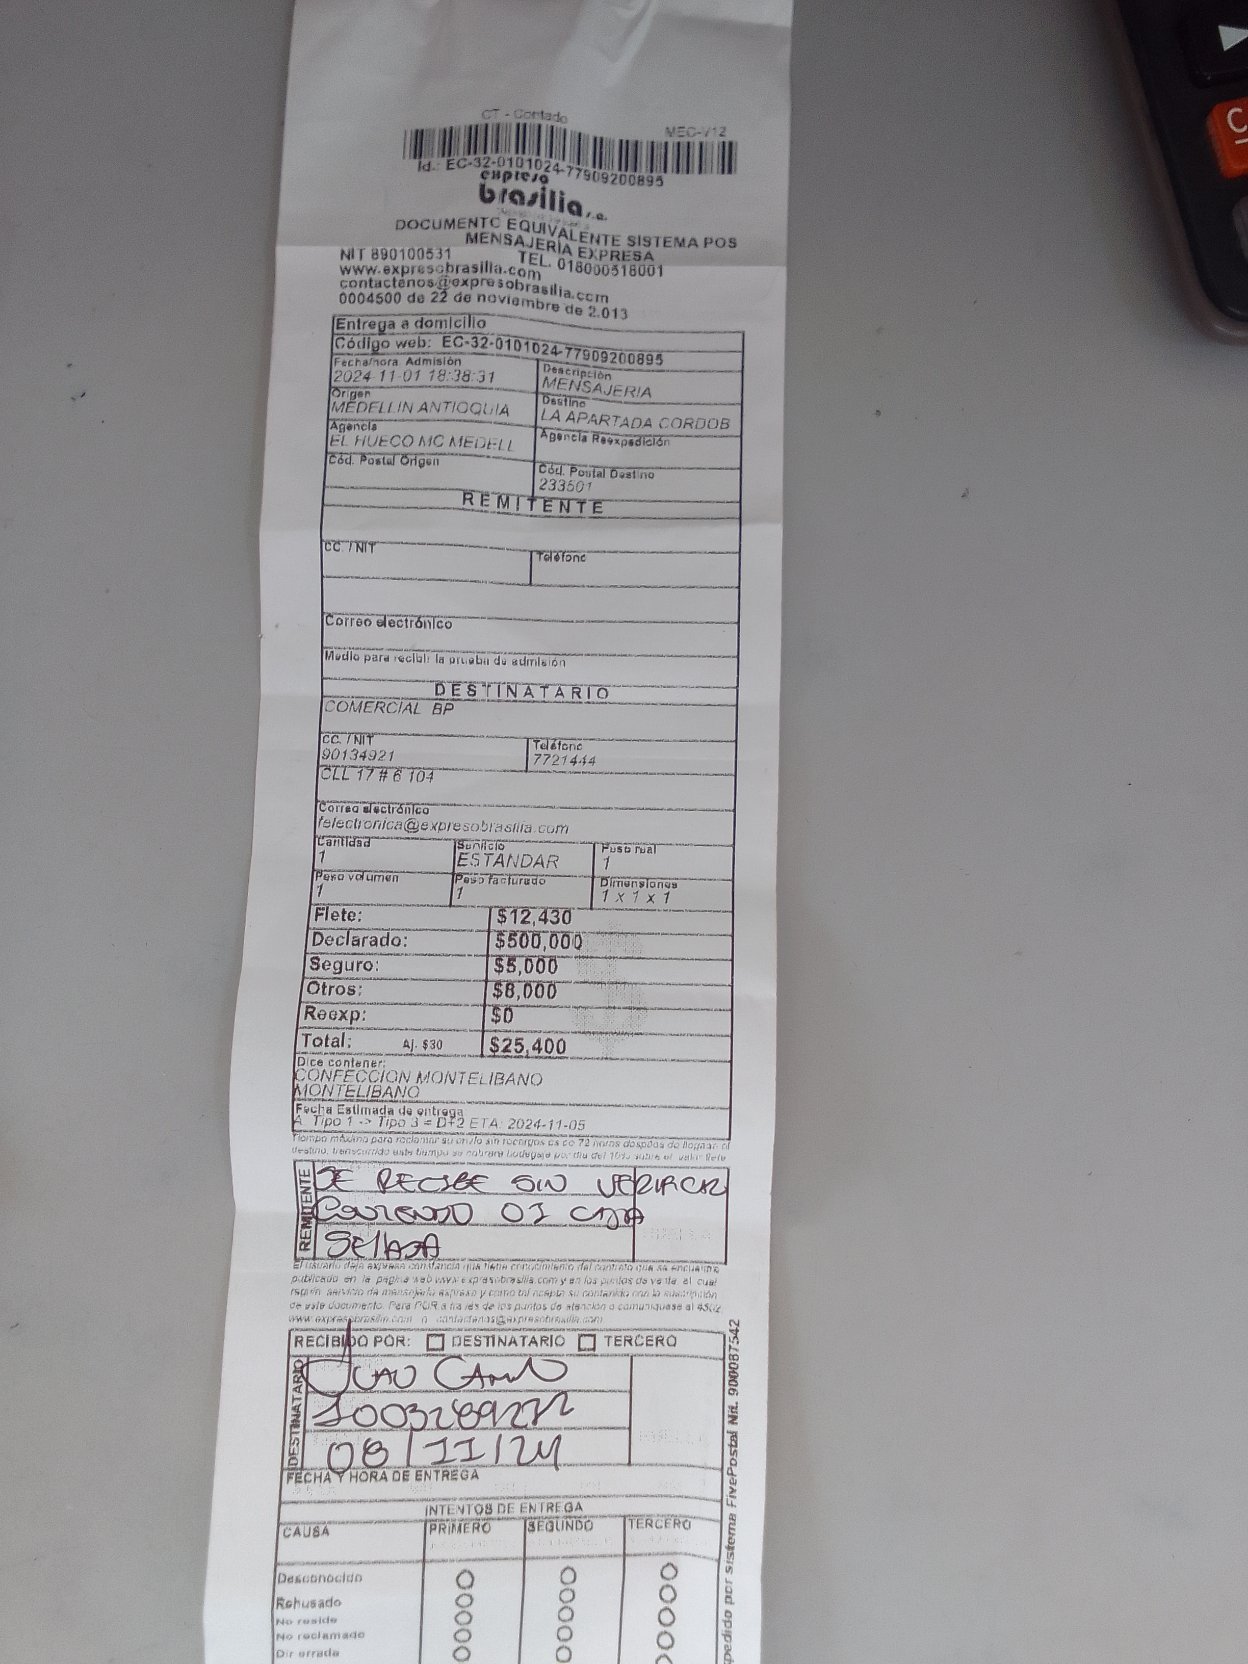 CT - Contado
MEC-V12
Id.: EC-32-0101024-77909200895
expreso
brasilia s.a.
DOCUMENTO EQUIVALENTE SISTEMA POS
MENSAJERÍA EXPRESA
NIT 890100531 TEL. 018000518001
www.expresobrasilia.com
contactenos@expresobrasilia.com
0004500 de 22 de noviembre de 2.013
Entrega a domicilio
Código web: EC-32-0101024-77909200895
Fecha/hora Admisión Descripción
2024-11-01 18:38:31 MENSAJERIA
Origen Destino
MEDELLIN ANTIOQUIA LA APARTADA CORDOB
Agencia Agencia Reexpedición
EL HUECO MC MEDELL
Cód. Postal Origen Cód. Postal Destino
233501
REMITENTE
CC. / NIT Teléfono
Correo electrónico
Medio para recibir la prueba de admisión
DESTINATARIO
COMERCIAL BP
CC. / NIT Teléfono
90134921 7721444
CLL 17 # 6 104
Correo electrónico
felectronica@expresobrasilia.com
Cantidad Servicio Peso real
1 ESTANDAR 1
Peso volumen Peso facturado Dimensiones
1 1 1 x 1 x 1
Flete: $12,430
Declarado: $500,000
Seguro: $5,000
Otros: $8,000
Reexp: $0
Total: Aj. $30 $25,400
Dice contener:
CONFECCION MONTELIBANO
MONTELIBANO
Fecha Estimada de entrega
A. Tipo 1 -> Tipo 3 = D+2 ETA: 2024-11-05
Tiempo máximo para reclamar su envío sin recargos es de 72 horas después de llegar al
destino, transcurrido este tiempo se cobrará bodegaje por día del 10% sobre el valor flete
REMITENTE
SE RECIBE SIN VERIFICAR
CONTENIDO 01 CAJA
SELLADA
El usuario deja expresa constancia que tiene conocimiento del contrato que se encuentra
publicado en la página web www.expresobrasilia.com y en los puntos de venta, el cual
regula servicio de mensajería expresa y como tal acepta su contenido con la suscripción
de este documento. Para PQR a través de los puntos de atención o comuníquese al
www.expresobrasilia.com o contactenos@expresobrasilia.com
RECIBIDO POR: DESTINATARIO TERCERO
DESTINATARIO
1003289272
08/11/24
FECHA Y HORA DE ENTREGA
INTENTOS DE ENTREGA
CAUSA PRIMERO SEGUNDO TERCERO
Desconocido
Rehusado
No reside
No reclamado
Dir errada
pedido por sistema FivePostal Nit. 900087542